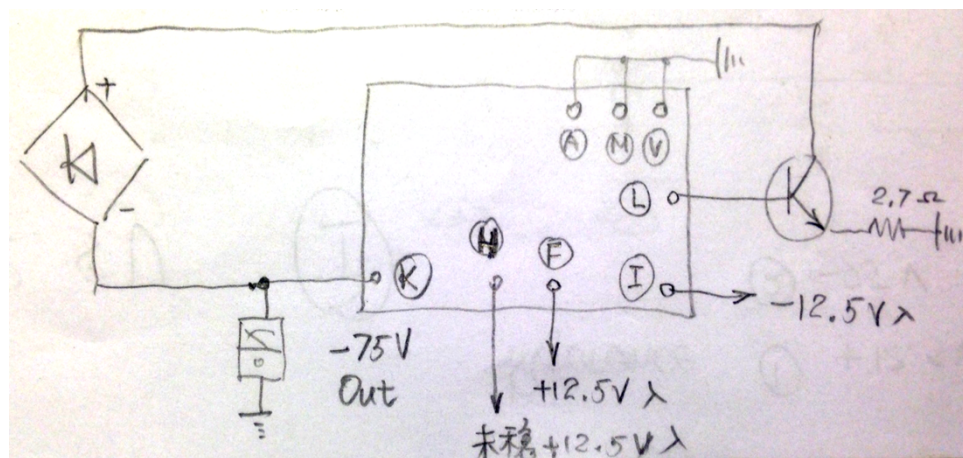 +
A M V
2.7Ω
L
H
F
I
K
-
-12.5V入
-75V
Out
+12.5V入
未稳+12.5V入